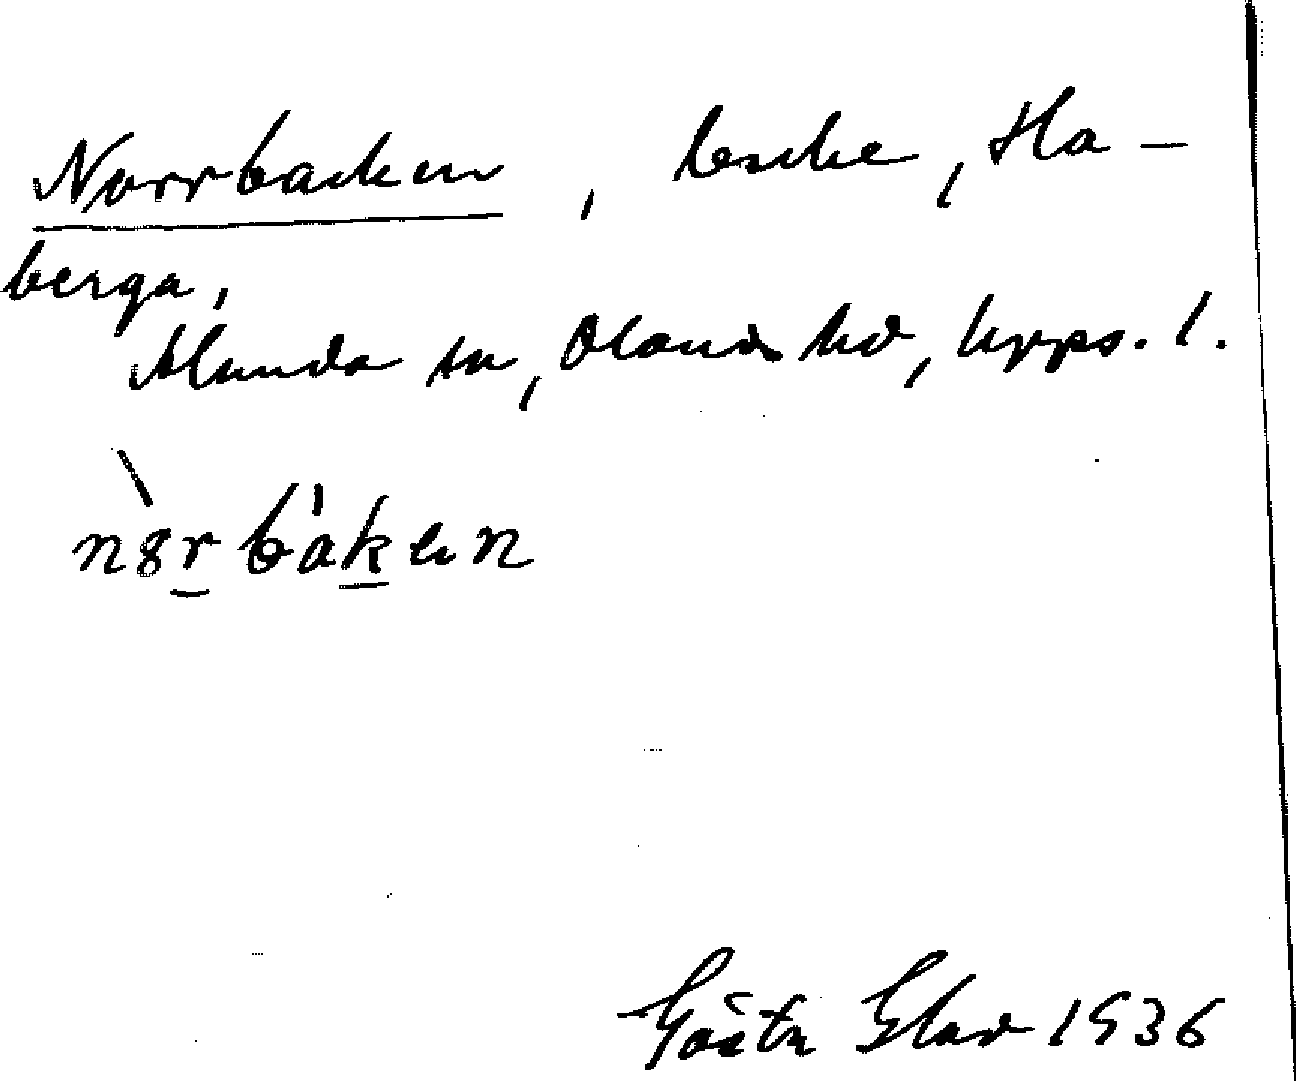 Norrbacken, besche, Ha-
berga,
Alunda sn, Olands hd, Upps. l.
n8rbaken
Gösta
1936